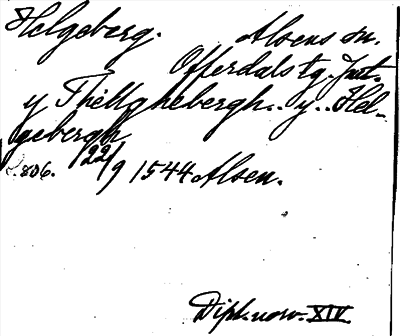 Helgeberg. Alsens sn.
Offerdals tg. Jmt.
y Thellghebergh.. y.. Hel-
gebergh
s. 806. 22/9 1544 Alsen.
Dipl. norv. XIV